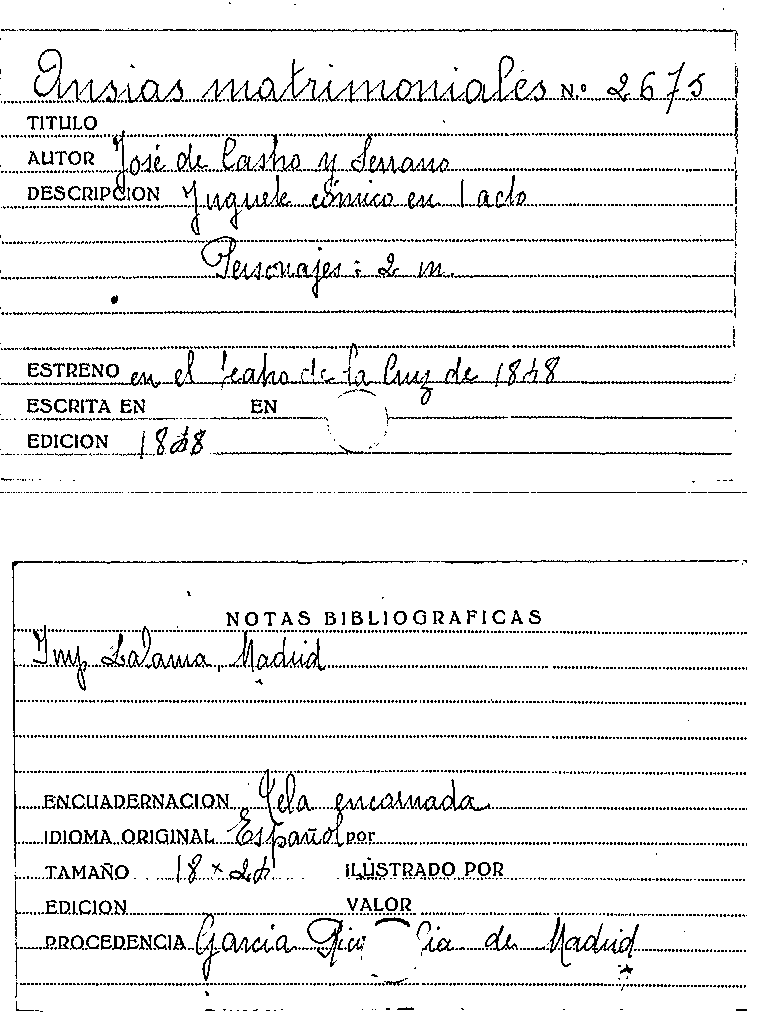 Ansias matrimoniales N.º 2675
TITULO
AUTOR José de Castro y Serrano
DESCRIPCION Juguete cómico en 1 acto
Personajes: 2 m.
ESTRENO en el teatro de la Cruz de 1848
ESCRITA EN EN
EDICION 1848
NOTAS BIBLIOGRAFICAS
Imp Lalama, Madrid
ENCUADERNACION Tela encarnada
IDIOMA ORIGINAL Español por
TAMAÑO 18 × 24 ILUSTRADO POR
EDICION VALOR
PROCEDENCIA Garcia Rico Cia de Madrid